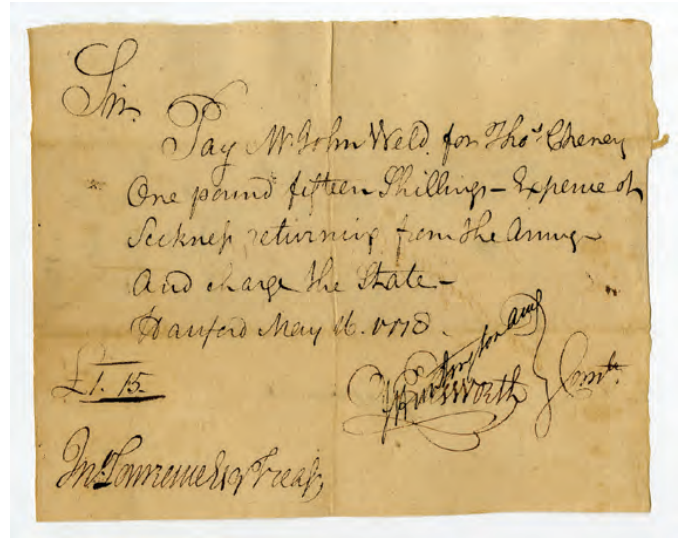 Sir.
Pay Mr. John Weld. for Thos. Cheney
One pound fifteen Shillings – Expence of
Sickness returning from the Army –
And charge the State –
Hartford May 16. 1778.
£1. 15.
Ellsworth
Comte.
Jno. Lawrence Esqr Treasr